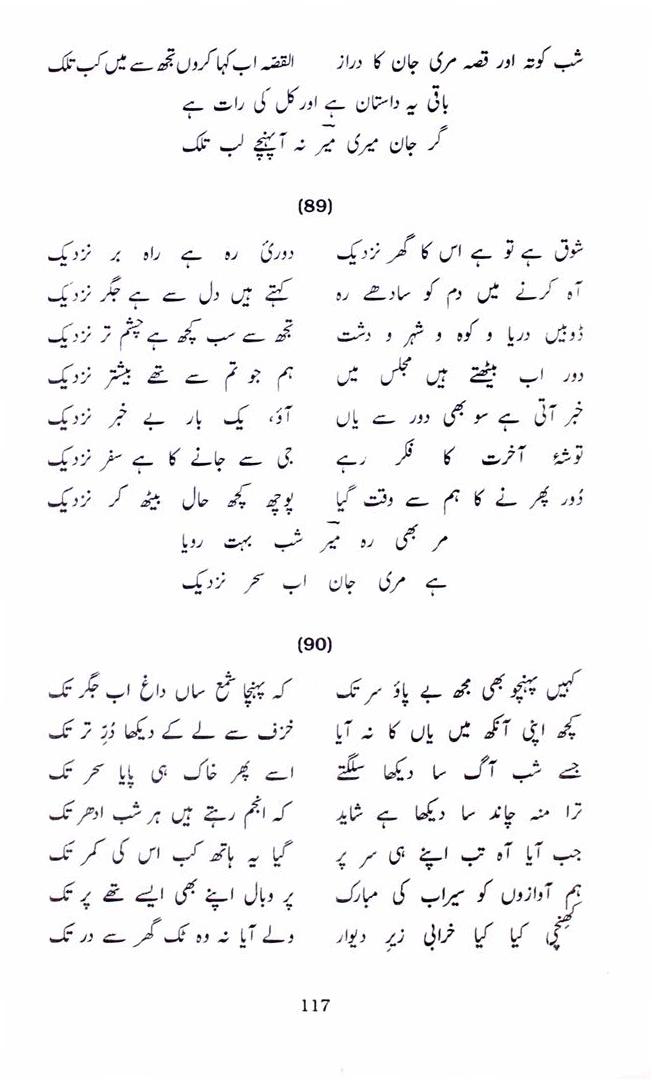 شب کوتہ اور قصہ مری جان کا دراز القصّہ اب کہا کروں تجھ سے میں کب تلک
باقی یہ داستان ہے اور کل کی رات ہے
گر جان میری میؔر نہ آ پہنچے لب تلک
(89)
شوق ہے تو ہے اس کا گھر نزدیک دوریٔ رہ ہے راہ بر نزدیک
آہ کرنے میں دم کو سادھے رہ کہتے ہیں دل سے ہے جگر نزدیک
ڈوبیں دریا و کوہ و شہر و دشت تجھ سے سب کچھ ہے چشم تر نزدیک
دور اب بیٹھتے ہیں مجلس میں ہم جو تم سے تھے بیشتر نزدیک
خبر آتی ہے سو بھی دور سے یاں آؤ، یک بار بے خبر نزدیک
توشۂ آخرت کا فکر رہے جی سے جانے کا ہے سفر نزدیک
دُور پھر نے کا ہم سے وقت گیا پوچھ کچھ حال بیٹھ کر نزدیک
مر بھی رہ میؔر شب بہت رویا
ہے مری جان اب سحر نزدیک
(90)
کہیں پہنچو بھی مجھ بے پاؤ سر تک کہ پہنچا شمع ساں داغ اب جگر تک
کچھ اپنی آنکھ میں یاں کا نہ آیا خزف سے لے کے دیکھا دُرِّ تر تک
جسے شب آگ سا دیکھا سلگتے اسے پھر خاک ہی پایا سحر تک
ترا منہ چاند سا دیکھا ہے شاید کہ انجم رہتے ہیں ہر شب ادھر تک
جب آیا آہ تب اپنے ہی سر پر گیا یہ ہاتھ کب اس کی کمر تک
ہم آوازوں کو سیراب کی مبارک پر وبال اپنے بھی ایسے تھے پر تک
کھنچی کیا کیا خرابی زیرِ دیوار ولے آیا نہ وہ ٹک گھر سے در تک
117